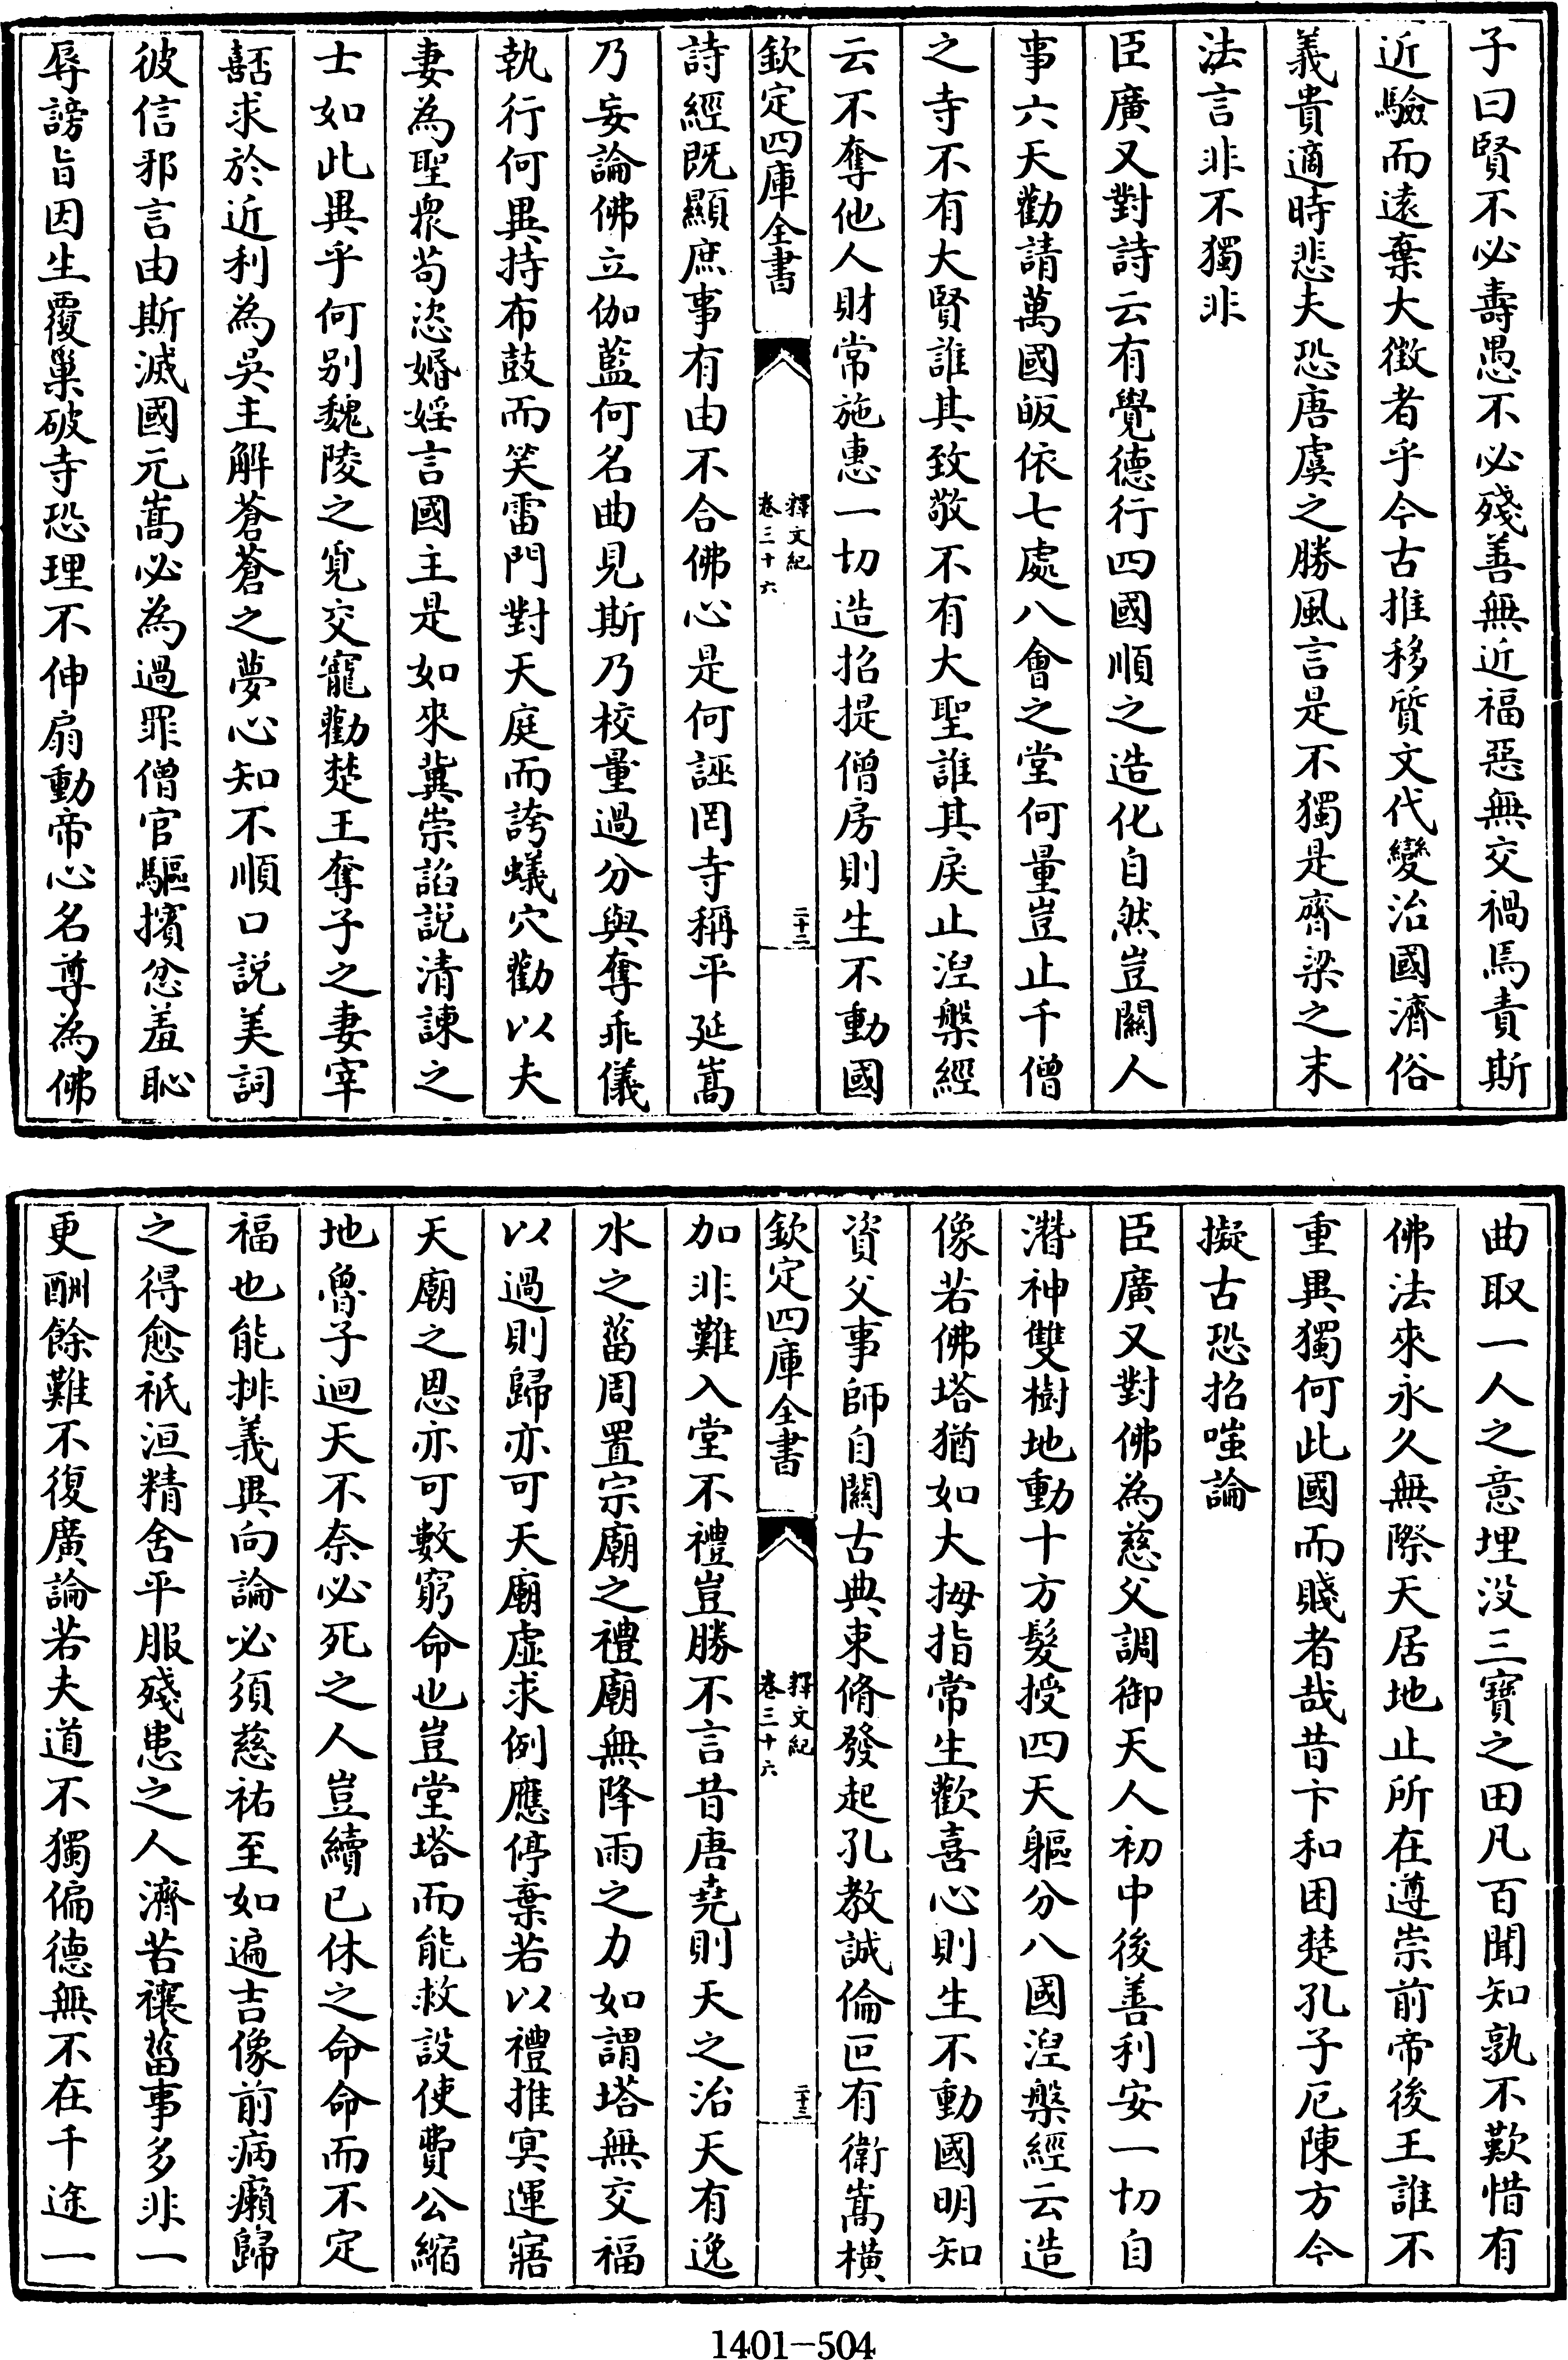 子曰賢不必壽愚不必殘善無近福惡無交禍焉責斯
近驗而遠棄大徵者乎今古推移質文代變治國濟俗
義貴適時悲夫恐唐虞之勝風言是不獨是齊梁之末
法言非不獨非
臣廣又對詩云有覺德行四國順之造化自然豈關人
事六天勸請萬國皈依七處八會之堂何量豈止千僧
之寺不有大賢誰其致敬不有大聖誰其戾止湼槃經
云不奪他人財常施惠一切造招提僧房則生不動國
欽定四庫全書
釋文紀
卷三十六
二十二
詩經既顯庶事有由不合佛心是何誣罔寺稱平延嵩
乃妄論佛立伽藍何名曲見斯乃校量過分與奪乖儀
執行何異持布鼓而笑雷門對天庭而誇蟻穴勸以夫
妻為聖衆苟恣婚婬言國主是如來冀崇諂説清諫之
士如此異乎何别魏陵之覓交寵勸楚王奪子之妻宰
嚭求於近利為吳主解蒼蒼之夢心知不順口説美詞
彼信邪言由斯滅國元嵩必為過罪僧官驅擯忿羞恥
辱謗旨因生覆巢破寺恐理不伸扇動帝心名尊為佛
曲取一人之意埋没三寶之田凡百聞知孰不歎惜有
佛法來永久無際天居地止所在遵崇前帝後王誰不
重異獨何此國而賤者哉昔卞和困楚孔子厄陳方今
擬古恐招嗤論
臣廣又對佛為慈父調御天人初中後善利安一切自
潛神雙樹地動十方髮授四天軀分八國湼槃經云造
像若佛塔猶如大拇指常生歡喜心則生不動國明知
資父事師自關古典束脩發起孔教誠倫叵有衛嵩橫
欽定四庫全書
釋文紀
卷三十六
二十三
加非難入堂不禮豈勝不言昔唐堯則天之治天有逸
水之菑周置宗廟之禮廟無降雨之力如謂塔無交福
以過則歸亦可天廟虛求例應停棄若以禮推冥運寤
天廟之恩亦可數窮命也豈堂塔而能救設使費公縮
地魯子迴天不奈必死之人豈續已休之命命而不定
福也能排義異向論必須慈祐至如遍吉像前病癩歸
之得愈祇洹精舍平服殘患之人濟苦禳菑事多非一
更酬餘難不復廣論若夫道不獨偏德無不在千途一
1401-504